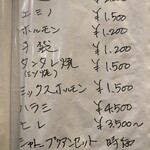 ¥1.500
エミノ ¥1.500
ホルモン ¥1.200
子袋 ¥1.200
タンタレ焼 ¥1.500
ミックスホルモン ¥1.500
ハラミ ¥4,500
ヒレ ¥3,500〜
シャトーブリアンセット 時価